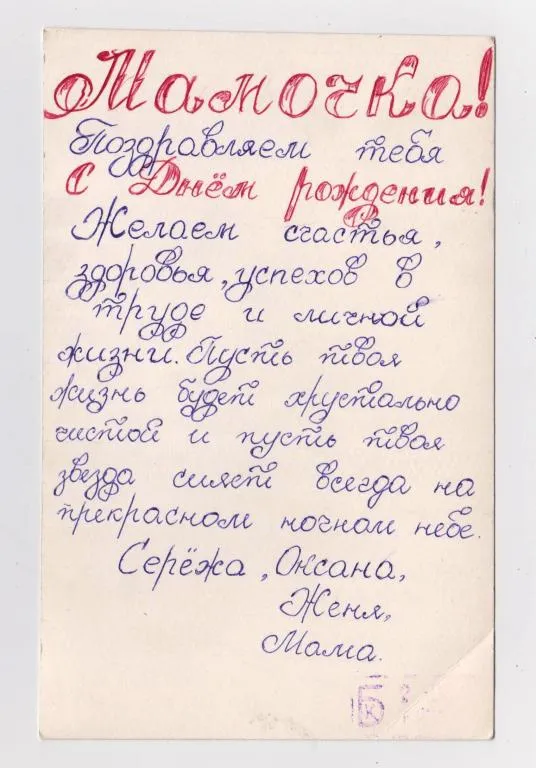 Мамочка!
Поздравляем тебя
с Днём рождения!
Желаем счастья,
здоровья, успехов в
труде и личной
жизни. Пусть твоя
жизнь будет хрустально
чистой и пусть твоя
звезда сияет всегда на
прекрасном ночном небе.
Серёжа, Оксана,
Женя,
Мама.
Б
К